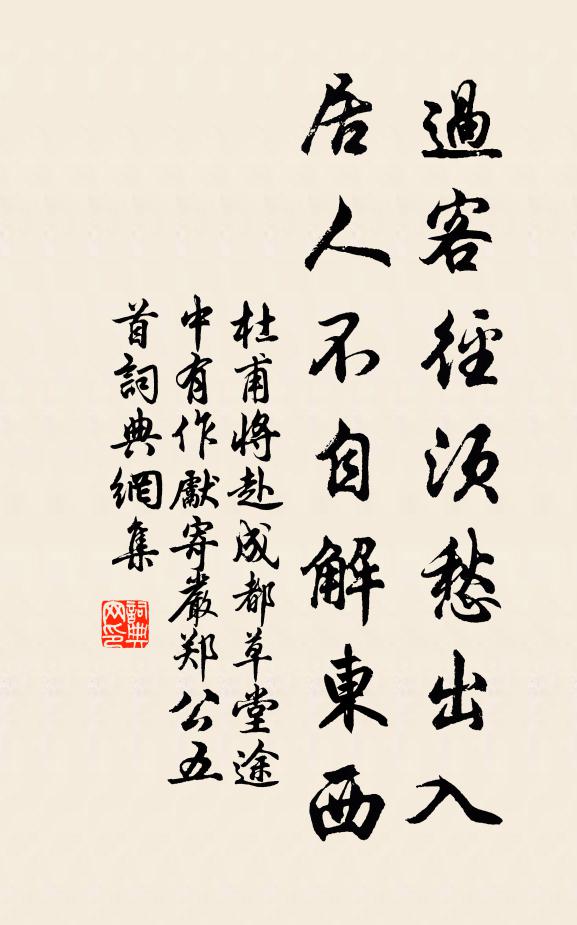 過客徑須愁出入
居人不自解東西
杜甫將赴成都草堂途
中有作獻寄嚴郑公五
首詞典網集
詞典网印